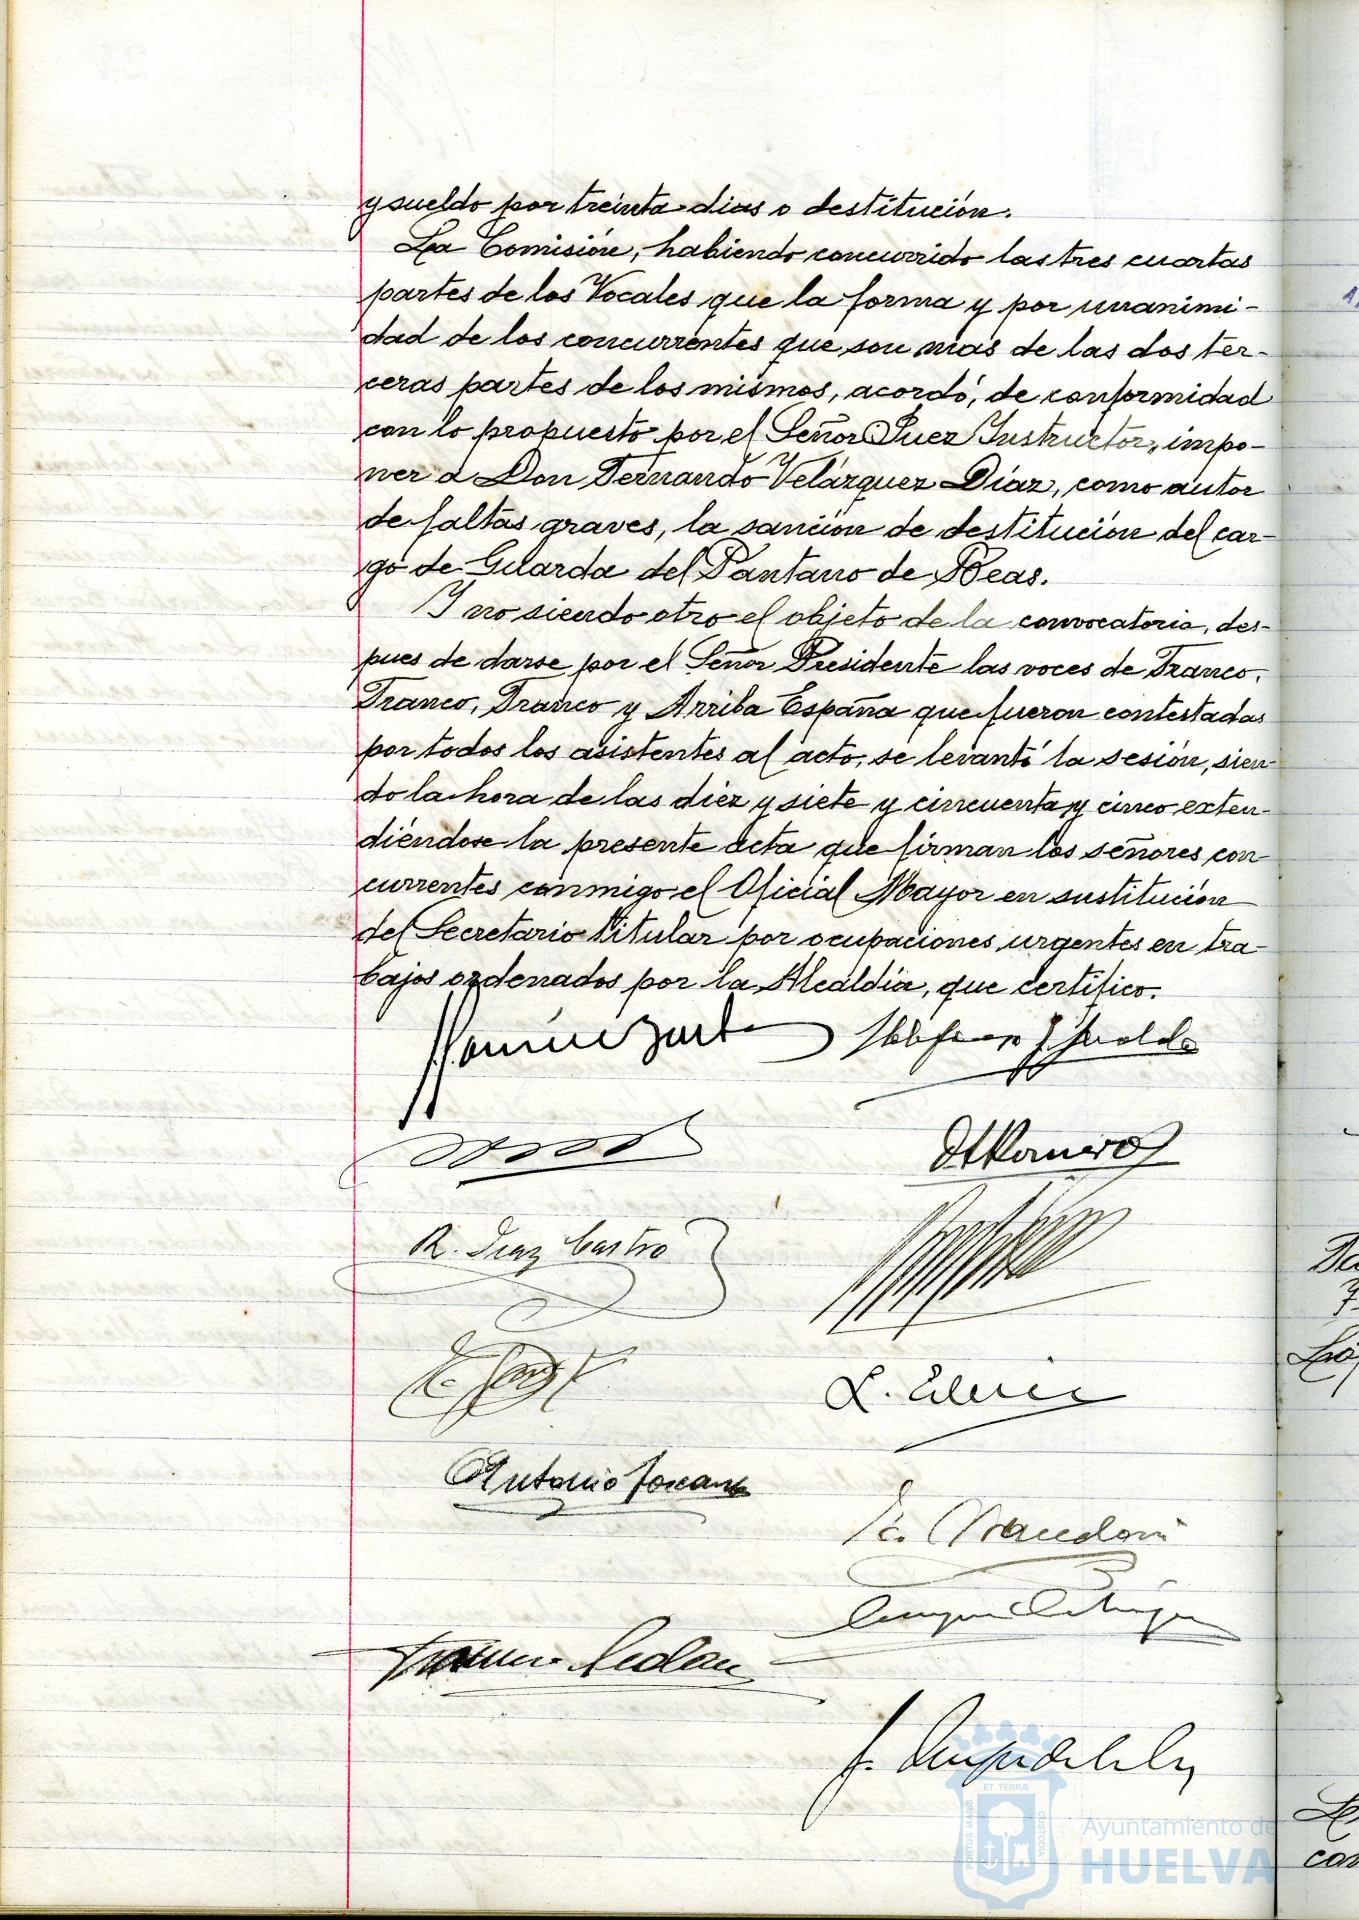 y sueldo por treinta dias o destitución.
La Comisión, habiendo concurrido las tres cuartas
partes de los Vocales que la forma y por unanimi-
dad de los concurrentes que son mas de las dos ter-
ceras partes de los mismos, acordó, de conformidad
con lo propuesto por el Señor Juez Instructor, impo-
ner a Don Fernando Velázquez Díaz, como autor
de faltas graves, la sanción de destitución del car-
go de Guarda del Pantano de Beas.
Y no siendo otro el objeto de la convocatoria, des-
pues de darse por el Señor Presidente las voces de Franco,
Franco, Franco y Arriba España que fueron contestadas
por todos los asistentes al acto, se levantó la sesión, sien-
do la hora de las diez y siete y cincuenta y cinco exten-
diéndose la presente acta que firman los señores con
currentes conmigo el Oficial Mayor en sustitución
del Secretario titular por ocupaciones urgentes en tra-
bajos ordenados por la Alcaldía, que certifico.
R. Diaz Castro
Antonio Toscano
PORTUS MARIS ET TERRÆ CUSTODIA
Ayuntamiento de
HUELVA